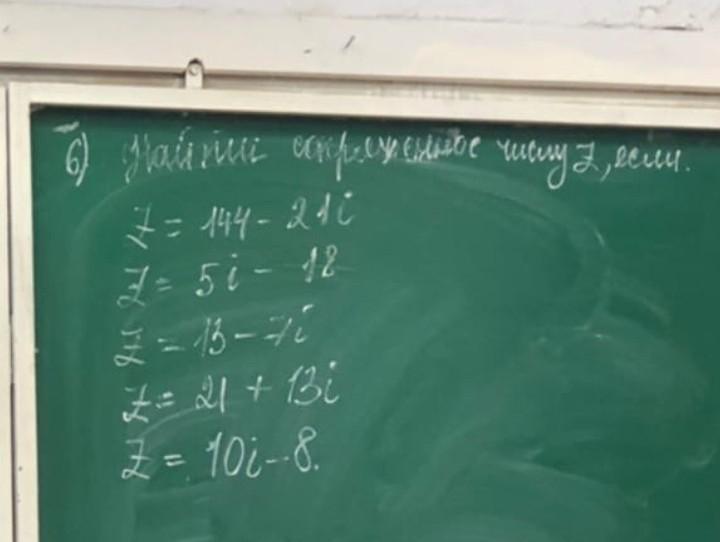 б) Найти сопряженное числу z, если.
z = 144 - 21i
z = 5i - 18
z = 13 - 7i
z = 21 + 13i
z = 10i - 8.